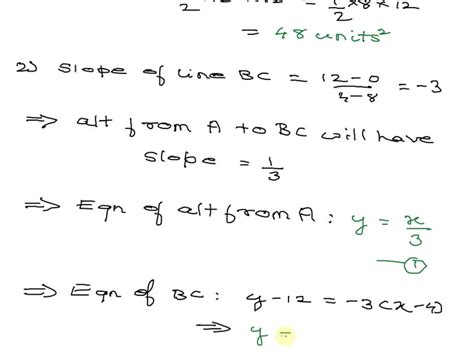 = 1/2 × 8 × 12
2
= 48 units²
2) Slope of line BC = 12-0/4-8 = -3
⇒ alt from A to BC will have
slope = 1/3
⇒ Eqn of alt from A : y = x/3
①
⇒ Eqn of BC : y-12 = -3(x-4)
⇒ y =